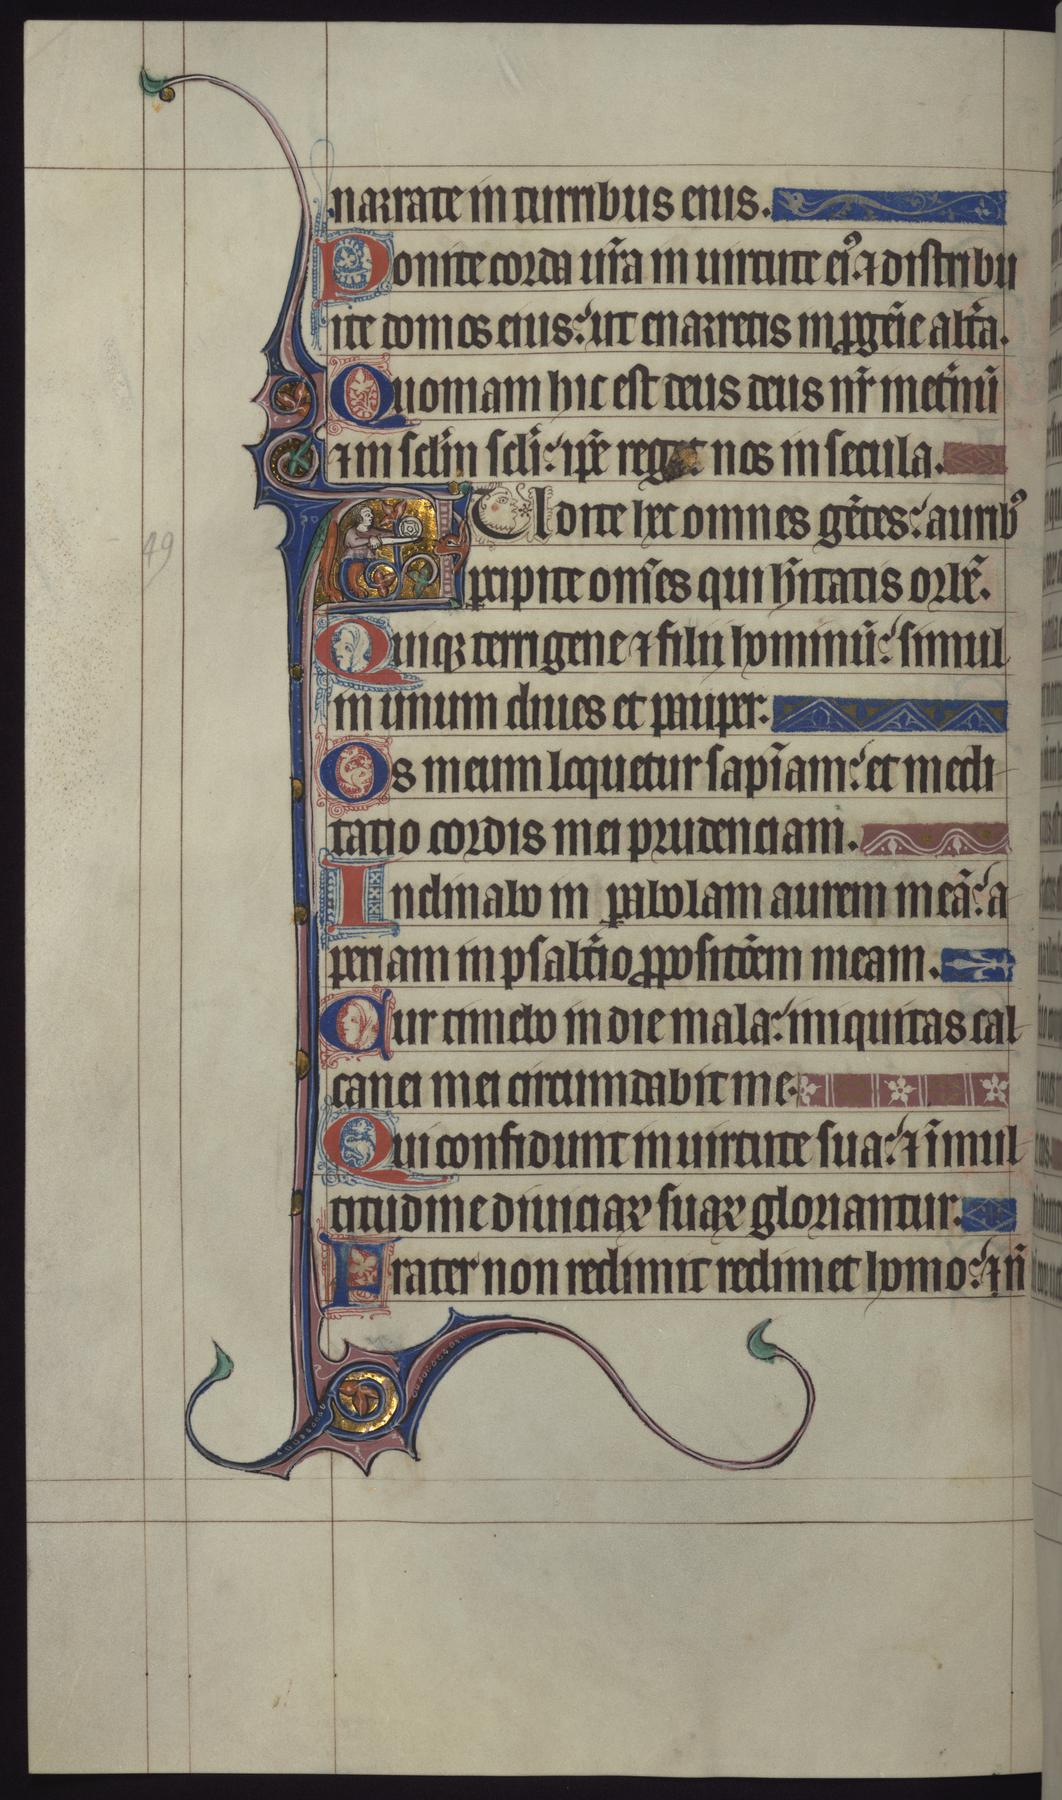 narrate in turribus eius.
Ponite corda ur̄a in uirtute ei⁹. ⁊ distribu
ite domos eius: ut enarretis in ꝓgēie alt̄a.
Quoniam hic est deus deus nr̄ inet̄nū
⁊ in sclm̄ scli: ip̄e reget nos in secula.
AUdite hec omnes gētes: aurib⁹
ꝑcipite om̄es qui hītatis orbē.
Quiqꝫ terrigene ⁊ filii hominū: simul
in unum diues et pauper.
Os meum loquetur sapīam: et medi
tatio cordis mei prudenciam.
Inclinabo in ꝑabolam aurem meā: a
periam in psalt̄io ꝓpositōem meam.
Cur timebo in die mala: iniquitas cal
canei mei circumdabit me.
Qui confidunt in uirtute sua: ⁊ ī mul
titudine diuiciaꝝ suaꝝ gloriantur.
Frater non redimit redimet homo: ⁊ ñ
49